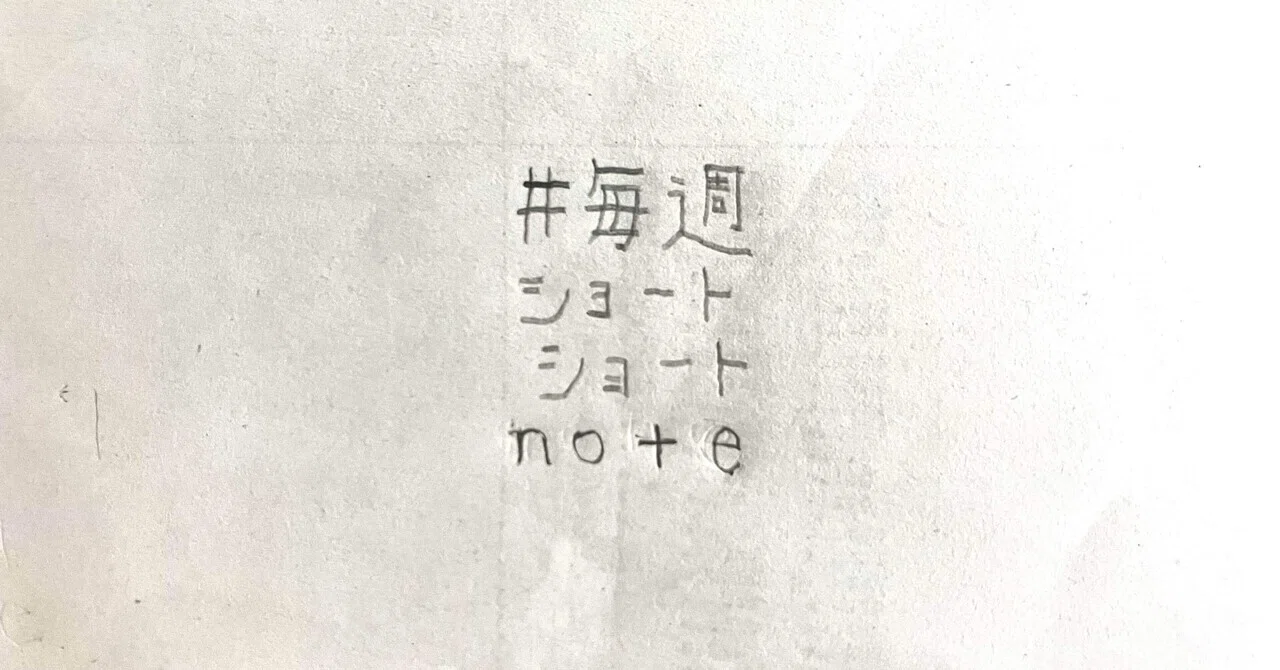 #毎週
ショート
ショート
note